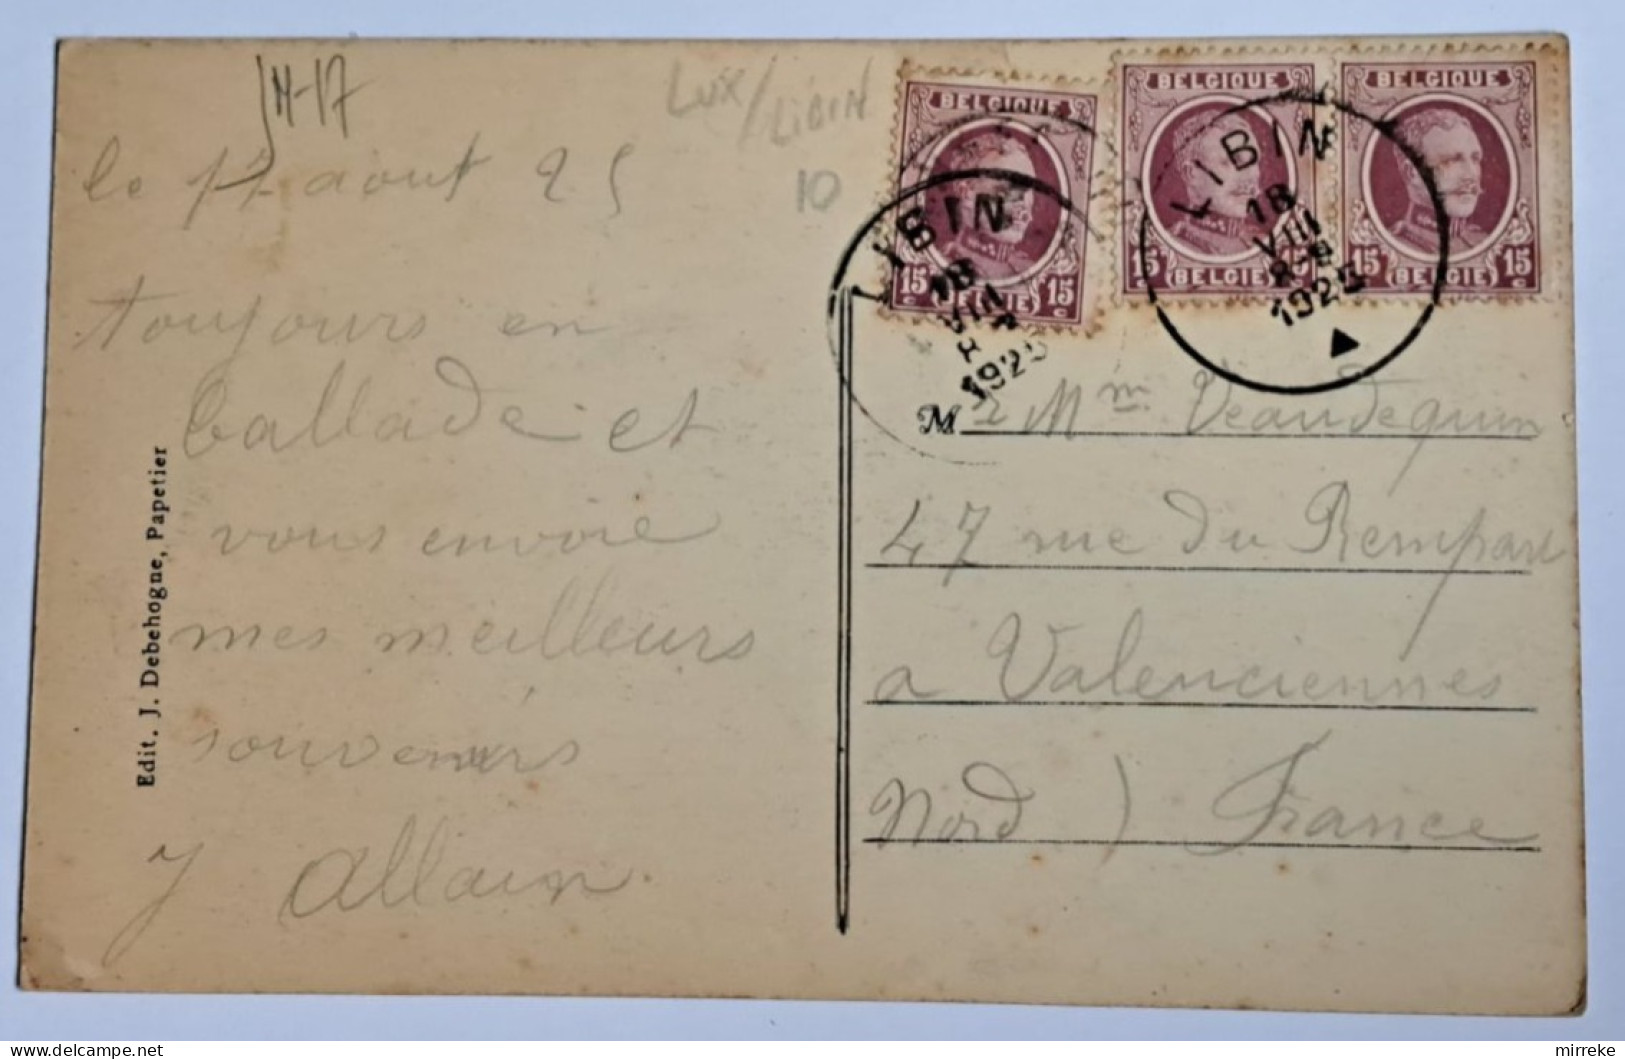 JM-17
LUX/LIBIN
10
le 17 aout 25
toujours en
ballade et
vous envoie
mes meilleurs
souvenirs
J Allain.
Edit. J. Debehogne, Papetier
BELGIQUE
15 BELGIË 15
c c
BELGIQUE
15 BELGIË
c
BELGIQUE
15 BELGIË 15
c
LIBIN
18
VIII
1925
LIBIN
18
VIII
8-9
1925
M r Mm Veaudequin
47 rue du Rempart
a Valenciennes
Nord ) France
mirreke